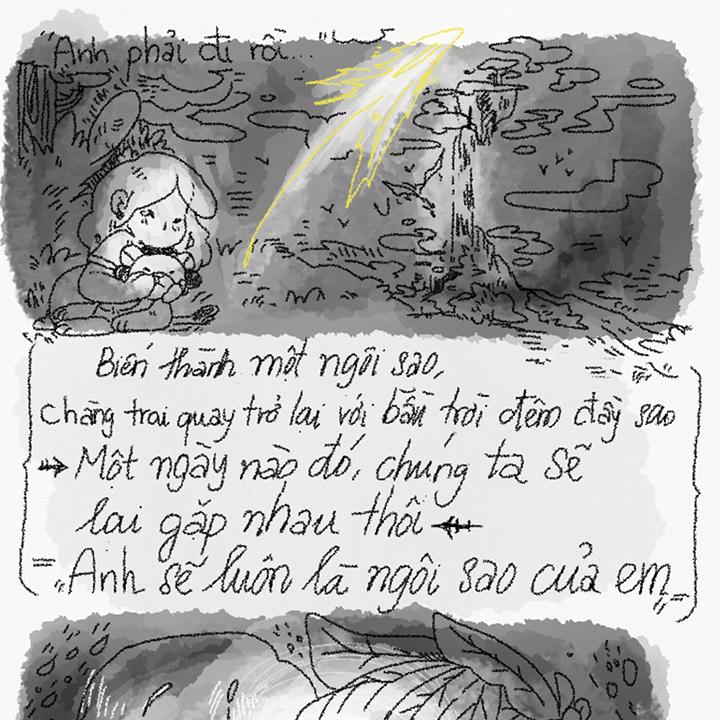 "Anh phải đi rồi..."
Biến thành một ngôi sao,
chàng trai quay trở lại với bầu trời đêm đầy sao
Một ngày nào đó, chúng ta sẽ
lại gặp nhau thôi
"Anh sẽ luôn là ngôi sao của em"